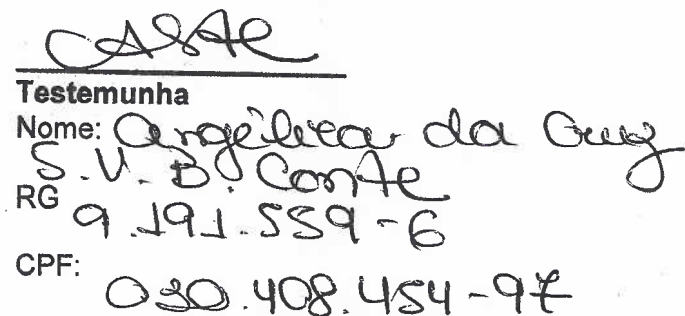 Testemunha
Nome: Angélica da Cruz
S.V.B. Conte
RG 9.191.559-6
CPF:
030.408.454-97